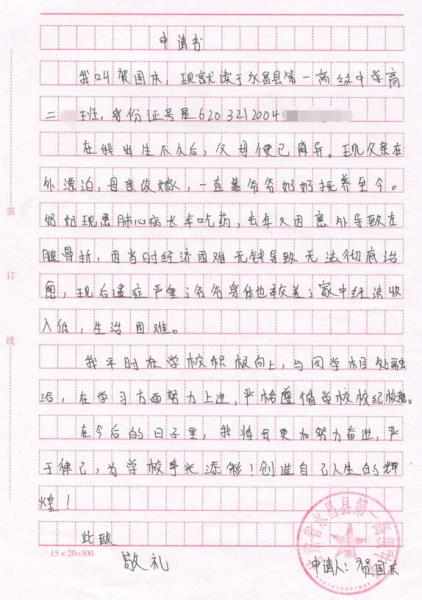 申请书
我叫贺国东，现就读于永昌县第一高级中学高
二 班，身份证号是6203212004
在我出生不久后，父母便已离异。现父亲在
外漂泊，母亲改嫁，一直靠爷爷奶奶抚养至今。
奶奶现患肺心病长年吃药，去年又因意外导致左
腿骨折，因当时经济困难无钱导致无法彻底治
愈，现后遗症严重；爷爷身体也较差；家中经济收
入低，生活困难。
我平时在学校积极向上，与同学相处融
洽，在学习方面努力上进，严格遵循学校校纪校规。
在今后的日子里，我将会更加努力奋进，严
于律己，为学校争光添彩！创造自己人生的辉
煌！
此致
敬礼
申请人：贺国东
装
订
线
15×20=300
省永昌县第一高级